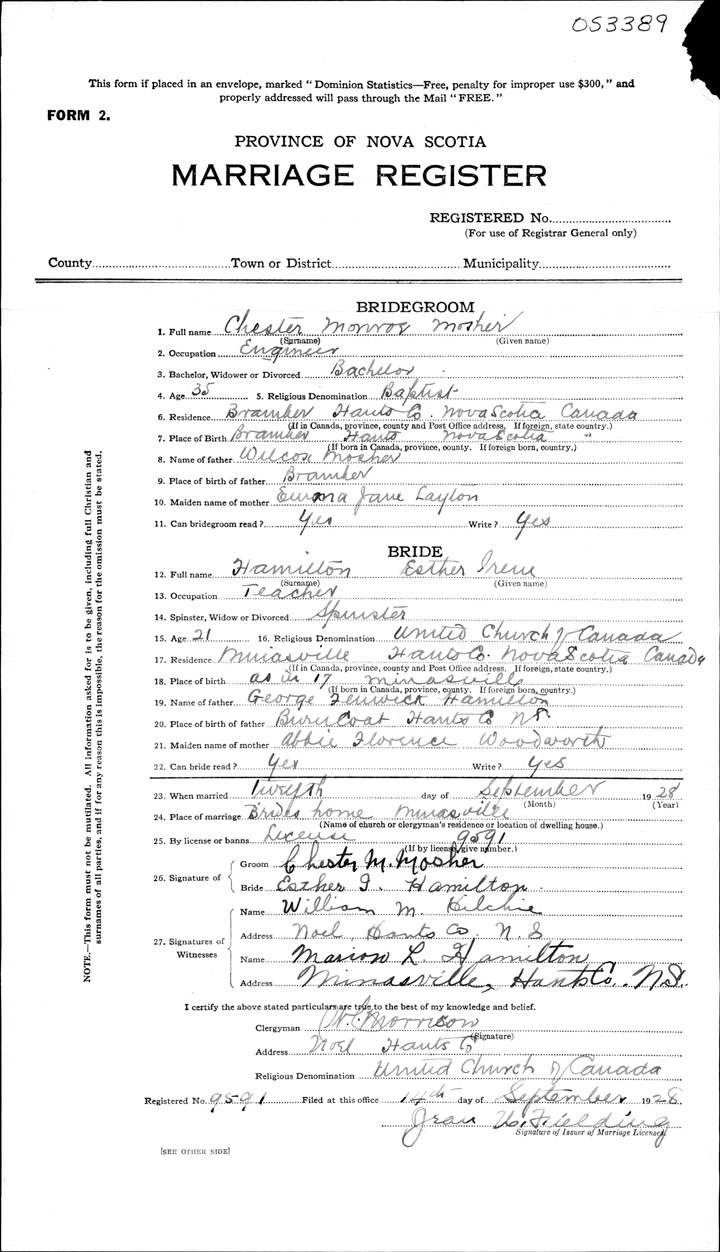 053389
This form if placed in an envelope, marked "Dominion Statistics—Free, penalty for improper use $300," and
properly addressed will pass through the Mail "FREE."
FORM 2.
PROVINCE OF NOVA SCOTIA
MARRIAGE REGISTER
REGISTERED No.
(For use of Registrar General only)
County Town or District Municipality
BRIDEGROOM
1. Full name Chester Monroe Mosher
(Surname) (Given name)
2. Occupation Engineer
3. Bachelor, Widower or Divorced Bachelor
4. Age 35 5. Religious Denomination Baptist
6. Residence Bramber Hants Co. Nova Scotia Canada
(If in Canada, province, county and Post Office address. If foreign, state country.)
7. Place of Birth Bramber Hants Nova Scotia "
(If born in Canada, province, county. If foreign born, country.)
8. Name of father Wilcox Mosher
9. Place of birth of father Bramber
10. Maiden name of mother Emma Jane Layton
11. Can bridegroom read? Yes Write? Yes
BRIDE
12. Full name Hamilton Esther Irene
(Surname) (Given name)
13. Occupation Teacher
14. Spinster, Widow or Divorced Spinster
15. Age 21 16. Religious Denomination United Church of Canada
17. Residence Minasville Hants Co. Nova Scotia Canada
(If in Canada, province, county and Post Office address. If foreign, state country.)
18. Place of birth as in 17 Minasville
(If born in Canada, province, county. If foreign born, country.)
19. Name of father George Fenwick Hamilton
20. Place of birth of father Burn Coat Hants Co NS.
21. Maiden name of mother Abbie Florence Woodworth
22. Can bride read? Yes Write? Yes
23. When married Twelfth day of September 1928
(Month) (Year)
24. Place of marriage Brides home Minasville
(Name of church or clergyman's residence or location of dwelling house.)
25. By license or banns License 9591
(If by license, give number.)
26. Signature of Groom Chester M. Mosher
Bride Esther I. Hamilton
27. Signatures of Witnesses Name William M. Hilchie
Address Noel, Hants Co. N.S
Name Marion L. Hamilton
Address Minasville, Hants Co. N.S.
I certify the above stated particulars are true to the best of my knowledge and belief.
Clergyman Morrison
(Signature)
Address Noel Hants Co
Religious Denomination United Church of Canada
Registered No. 9591 Filed at this office 14th day of September 1928
Jean W. Fielding
Signature of Issuer of Marriage Licenses
[SEE OTHER SIDE]
NOTE.—This form must not be mutilated. All information asked for is to be given, including full Christian and
surnames of all parties, and if for any reason this is impossible, the reason for the omission must be stated.